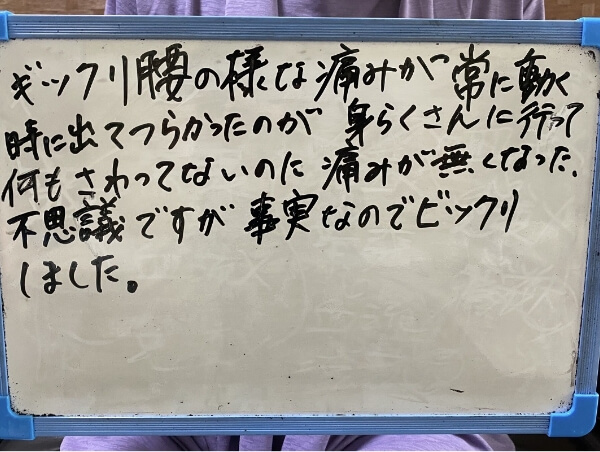 ギックリ腰の様な痛みが常に動く
時に出てつらかったのが 身らくさんに行って
何もさわってないのに 痛みが無くなった、
不思議ですが 事実なのでビックリ
しました。